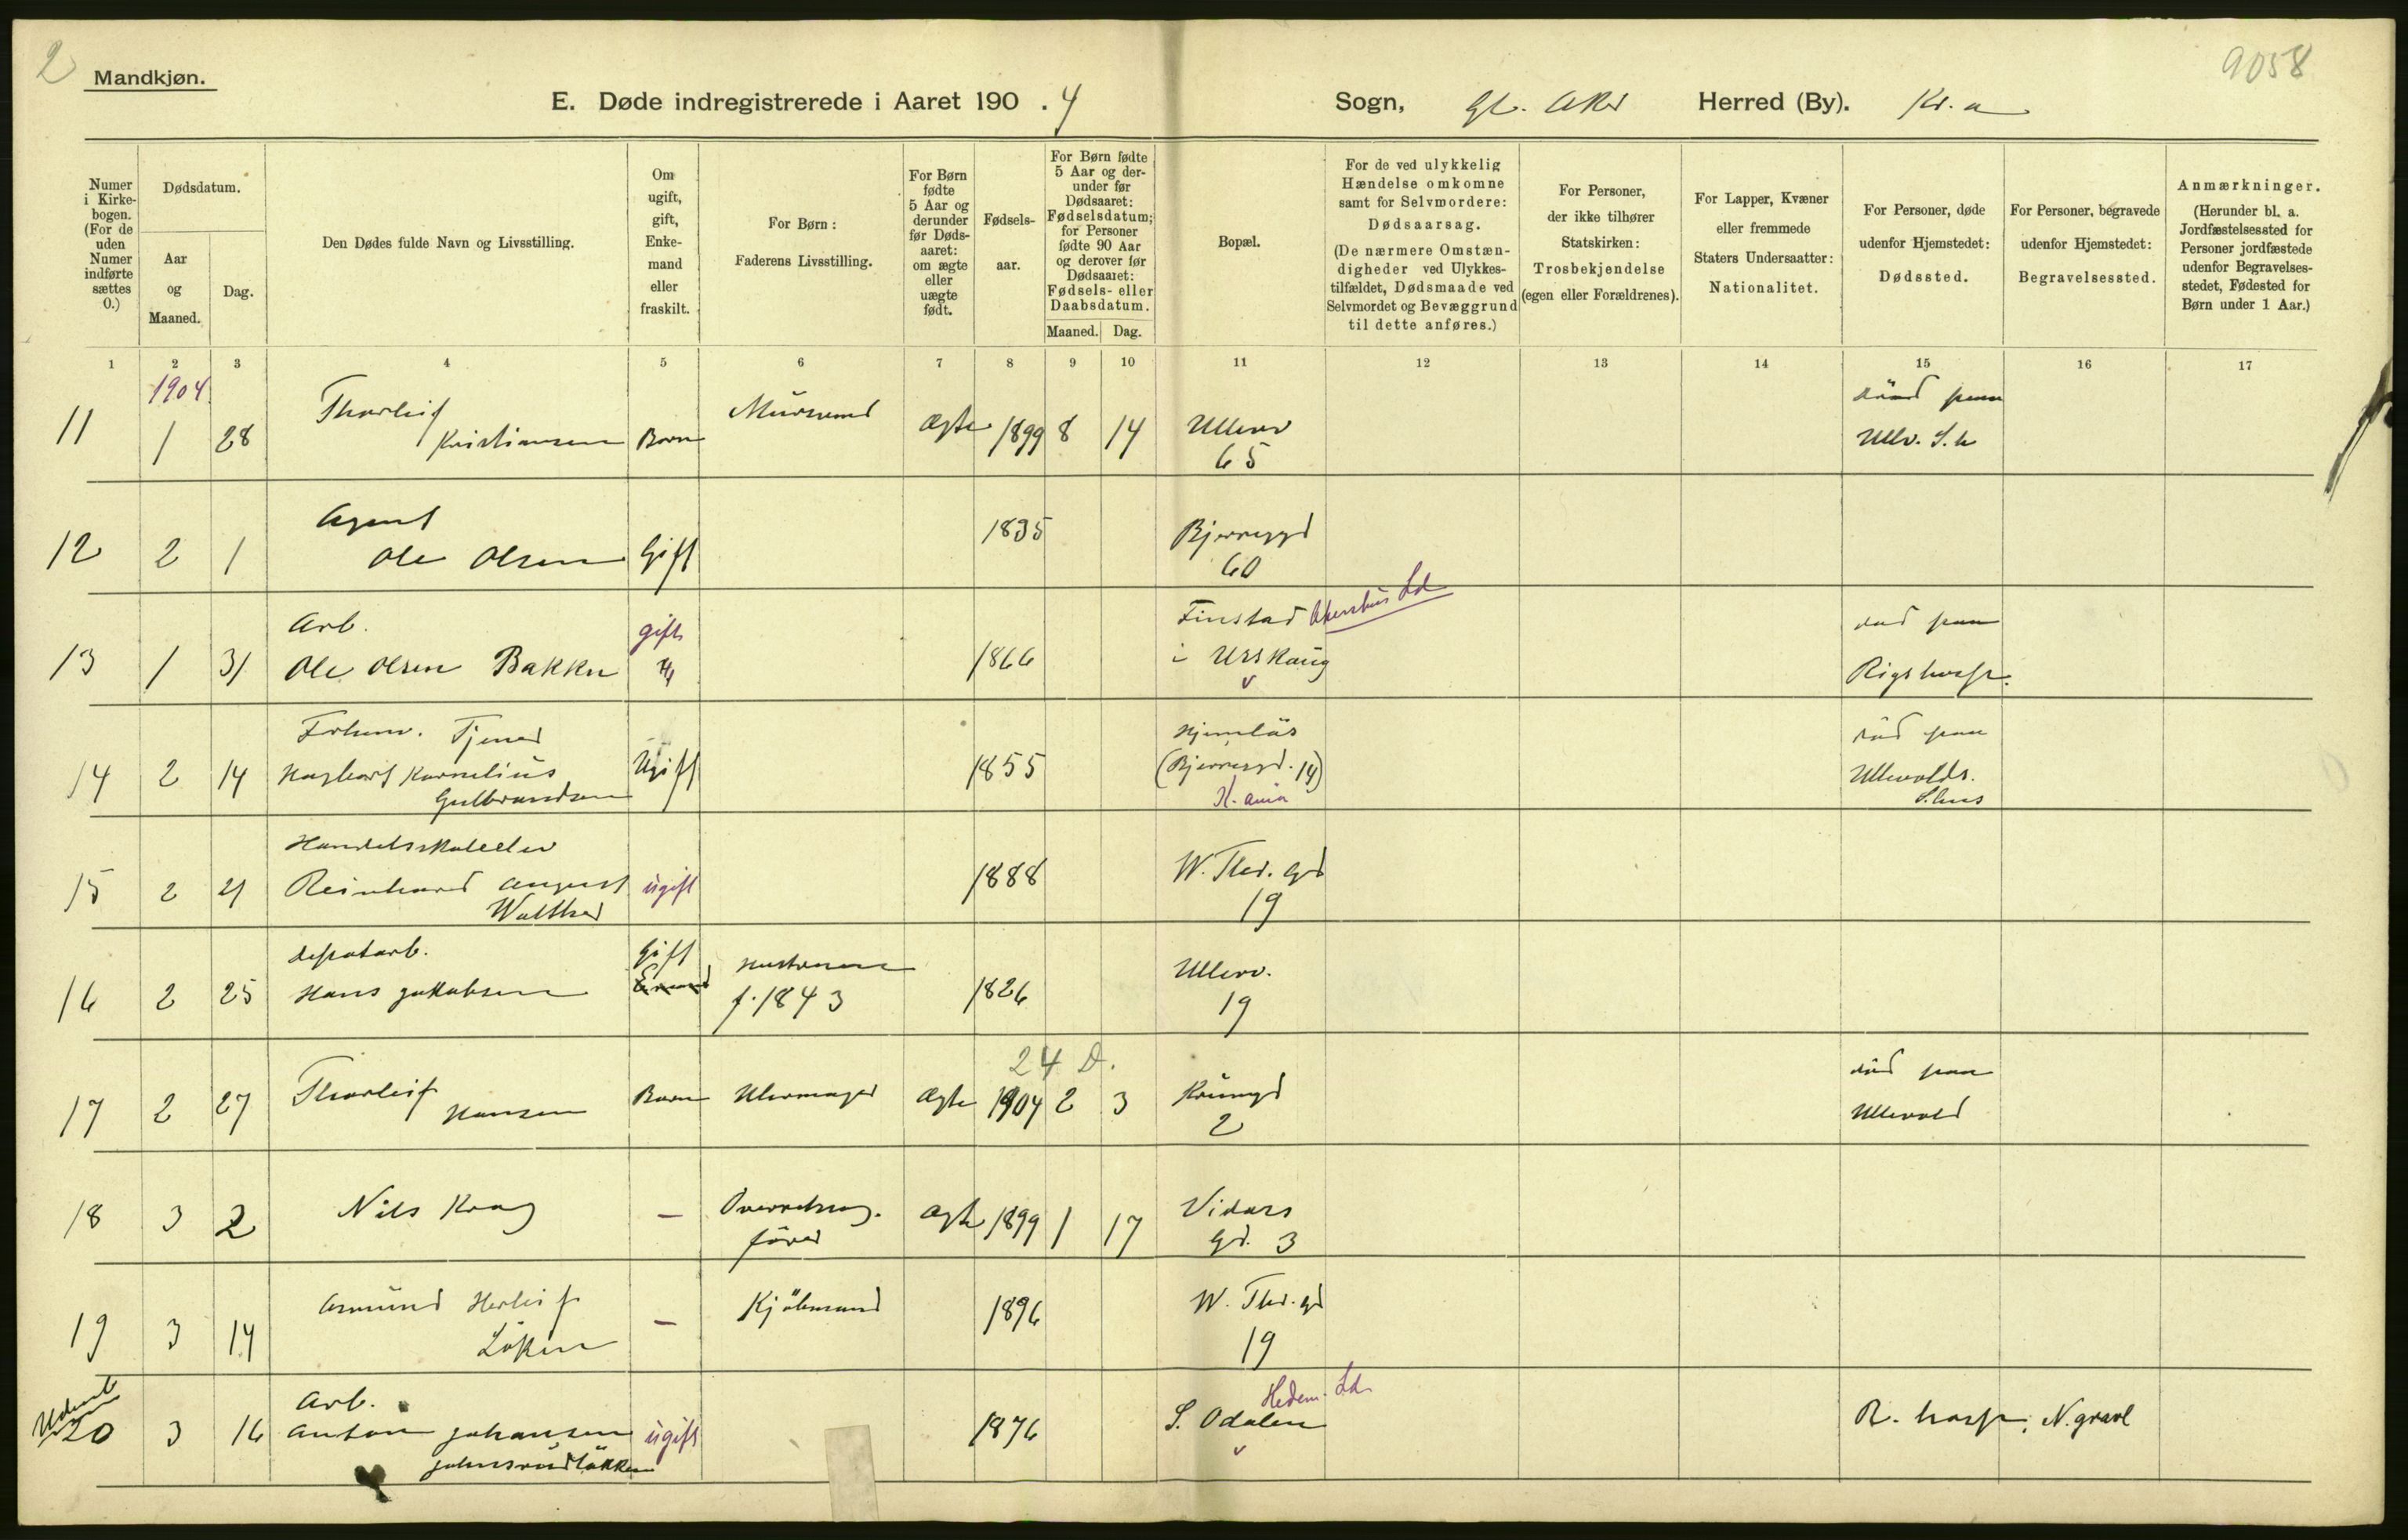 2
9058
Mandkjøn.
E. Døde indregistrerede i Aaret 190 . 4 Sogn, Gl. Aker Herred (By). Kr.a
Numer i Kirke-bogen. (For de uden Numer indførte sættes 0.)
Dødsdatum.
Aar og Maaned.
Dag.
Den Dødes fulde Navn og Livsstilling.
Om ugift, gift, Enke-mand eller fraskilt.
For Børn: Faderens Livsstilling.
For Børn fødte 5 Aar og derunder før Døds-aaret: om ægte eller uægte født.
Fødsels-aar.
For Børn fødte 5 Aar og der-under før Dødsaaret: Fødselsdatum; for Personer fødte 90 Aar og derover før Dødsaaret: Fødsels- eller Daabsdatum.
Maaned. Dag.
Bopæl.
For de ved ulykkelig Hændelse omkomne samt for Selvmordere: Dødsaarsag. (De nærmere Omstæn-digheder ved Ulykkes-tilfældet, Dødsmaade ved Selvmordet og Bevæggrund til dette anføres.)
For Personer, der ikke tilhører Statskirken: Trosbekjendelse (egen eller Forældrenes).
For Lapper, Kvæner eller fremmede Staters Undersaatter: Nationalitet.
For Personer, døde udenfor Hjemstedet: Dødssted.
For Personer, begravede udenfor Hjemstedet: Begravelsessted.
Anmærkninger. (Herunder bl. a. Jordfæstelsessted for Personer jordfæstede udenfor Begravelses-stedet, Fødested for Børn under 1 Aar.)
1 2 3 4 5 6 7 8 9 10 11 12 13 14 15 16 17
1904
11 1 28 Thorleif Kristiansen Barn Mursvend Ægte 1899 8 14 Ullerv 65 död paa Ullv. S.h
12 2 1 Agent Ole Olsen Gift 1835 Bjerregd 60
13 1 31 Arb. Ole Olsen Bakken gift 1866 Finstad i Urskaug Akershus Ld död paa Rigshosp.
14 2 14 Forhenv. Tjener Haghart Kornelius Gulbrandsen Ugift 1855 Hjemløs (Bjerregd. 14) K.ania död paa Ullevolds S.hus
15 2 21 Handelsskoleelev Reinhard August Walther ugift 1888 W. Thr. Gd 19
16 2 25 depotarb. Hans Jakobsen Gift Hustruen f. 1843 1826 Ullerv. 19
24 D.
17 2 27 Thorleif Hansen Barn Uhrmager Ægte 1904 2 3 2 död paa Ullevold
18 3 2 Nils Krag — Overretssag. förer Ægte 1899 1 17 Vidars Gd. 3
19 3 14 Asmund Herleif Löken — Kjöbmand 1896 W. Thr. gd 19
20 3 16 Arb. Anton Johansen Johnsrudløkken ugift 1876 S. Odalen Hedem. Ld R. hosp. N. gravl